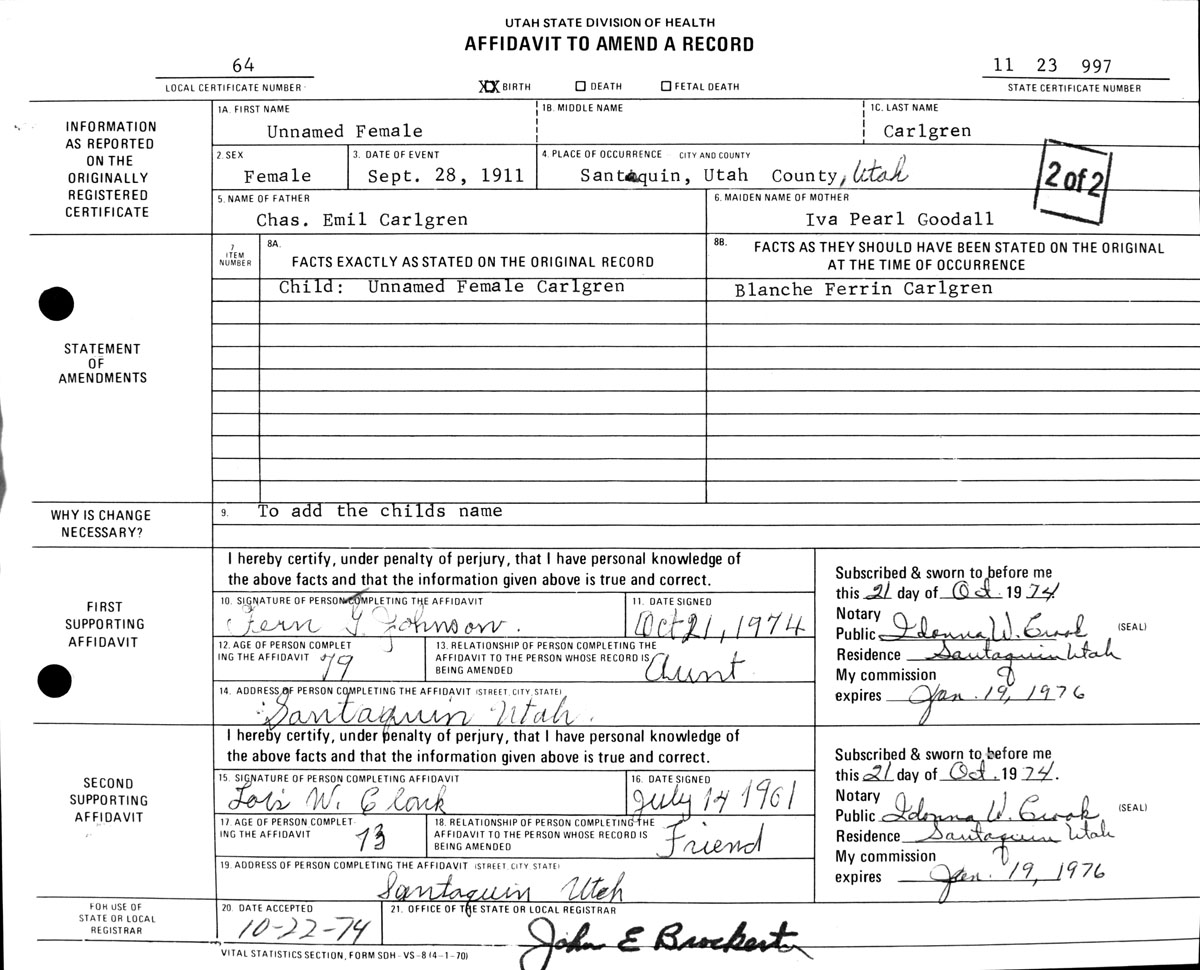 UTAH STATE DIVISION OF HEALTH
AFFIDAVIT TO AMEND A RECORD
64
LOCAL CERTIFICATE NUMBER
XX BIRTH DEATH FETAL DEATH
11 23 997
STATE CERTIFICATE NUMBER
INFORMATION
AS REPORTED
ON THE
ORIGINALLY
REGISTERED
CERTIFICATE
1A. FIRST NAME
Unnamed Female
1B. MIDDLE NAME
1C. LAST NAME
Carlgren
2. SEX
Female
3. DATE OF EVENT
Sept. 28, 1911
4. PLACE OF OCCURRENCE - CITY AND COUNTY
Santaquin, Utah County, Utah
2 of 2
5. NAME OF FATHER
Chas. Emil Carlgren
6. MAIDEN NAME OF MOTHER
Iva Pearl Goodall
STATEMENT
OF
AMENDMENTS
7
ITEM
NUMBER
8A.
FACTS EXACTLY AS STATED ON THE ORIGINAL RECORD
8B. FACTS AS THEY SHOULD HAVE BEEN STATED ON THE ORIGINAL
AT THE TIME OF OCCURRENCE
Child: Unnamed Female Carlgren
Blanche Ferrin Carlgren
WHY IS CHANGE
NECESSARY?
9. To add the childs name
FIRST
SUPPORTING
AFFIDAVIT
I hereby certify, under penalty of perjury, that I have personal knowledge of
the above facts and that the information given above is true and correct.
10. SIGNATURE OF PERSON COMPLETING THE AFFIDAVIT
Fern G. Johnson.
11. DATE SIGNED
Oct 21, 1974
12. AGE OF PERSON COMPLET
ING THE AFFIDAVIT 79
13. RELATIONSHIP OF PERSON COMPLETING THE
AFFIDAVIT TO THE PERSON WHOSE RECORD IS
BEING AMENDED
Aunt
14. ADDRESS OF PERSON COMPLETING THE AFFIDAVIT (STREET, CITY, STATE)
Santaquin Utah.
Subscribed & sworn to before me
this 21 day of Oct. 1974
Notary
Public Idonna W. Crook (SEAL)
Residence Santaquin Utah
My commission
expires Jan. 19, 1976
SECOND
SUPPORTING
AFFIDAVIT
I hereby certify, under penalty of perjury, that I have personal knowledge of
the above facts and that the information given above is true and correct.
15. SIGNATURE OF PERSON COMPLETING AFFIDAVIT
Lois W. Clark
16. DATE SIGNED
July 14 1961
17. AGE OF PERSON COMPLET
ING THE AFFIDAVIT 73
18. RELATIONSHIP OF PERSON COMPLETING THE
AFFIDAVIT TO THE PERSON WHOSE RECORD IS
BEING AMENDED
Friend
19. ADDRESS OF PERSON COMPLETING THE AFFIDAVIT (STREET, CITY, STATE)
Santaquin Utah
Subscribed & sworn to before me
this 21 day of Oct. 1974.
Notary
Public Idonna W. Crook (SEAL)
Residence Santaquin Utah
My commission
expires Jan. 19, 1976
FOR USE OF
STATE OR LOCAL
REGISTRAR
20. DATE ACCEPTED
10-22-74
21. OFFICE OF THE STATE OR LOCAL REGISTRAR
John E Brockert
VITAL STATISTICS SECTION, FORM SDH-VS-8 (4-1-70)